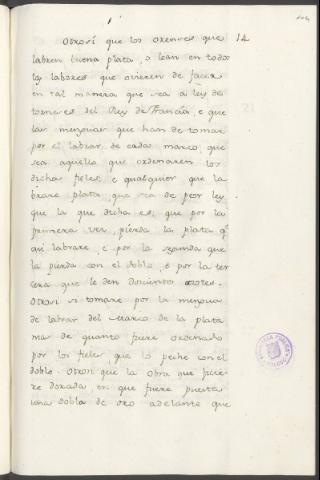 Otrosí que los orenzes que
labren buena plata, o lean en todos
los labores que ovieren de facer
en tal manera que sea a ley de
torneses del Rey de Francia, e que
las menguas que han de tomar
por el labrar de cada marco que
sea aquello que ordenaren los
dichos fieles, e qualquier que la
brare plata, que sea de peor ley
que la que dicha es, que por la
primera vez, pierda la plata q.e
qui labrare, e por la segunda que
la pierda con el doblo, e por la ter
cera que le den doscientos azotes.
Otrosi si tomare por la mengua
de labrar del Marco de la plata
mas de quanto fuere ordenado
por los fieles que lo peche con el
doblo. Otrosi que la obra que fue
re dorada en que fuere puesta
una dobla de oro adelante que
14